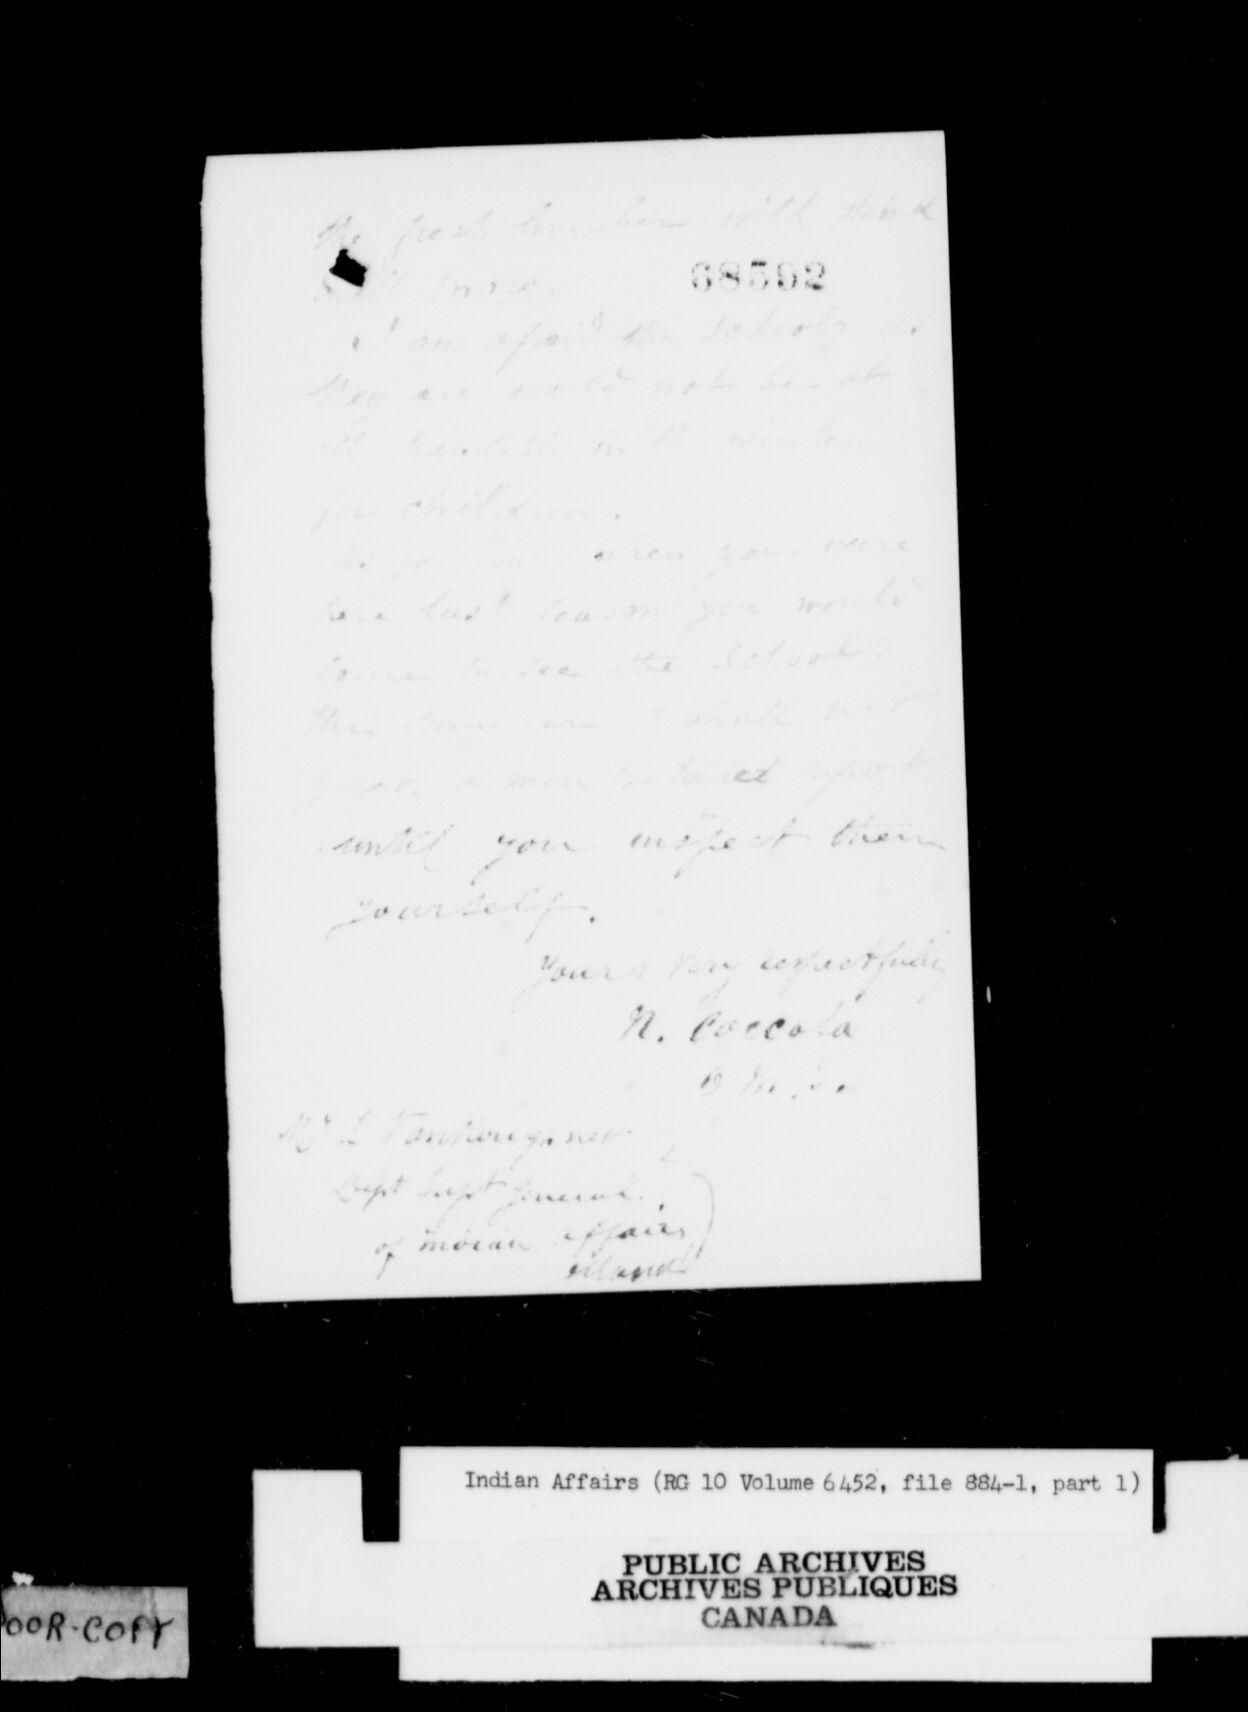 the fresh lumber will shrink
still more.
68592
I am afraid the schools as
they are would not be at
all habitable in the winter
for children.
As you said when you were
here last season you would
come to see the schools
this summer I shall not
give a more detailed report
until you inspect them
yourself.
Yours very respectfully
N. Coccola
O M. I.
Mr L VanKoughnet
Dept Supt General
of Indian Affairs
Indian Affairs (RG 10 Volume 6452, file 884-1, part 1)
PUBLIC ARCHIVES
ARCHIVES PUBLIQUES
CANADA
OOR-COPY